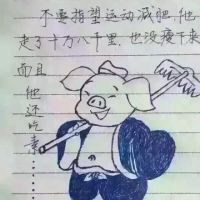 不要指望运动减肥.他
走了十万八千里.也没瘦下来
而且
他
还
吃
素
……